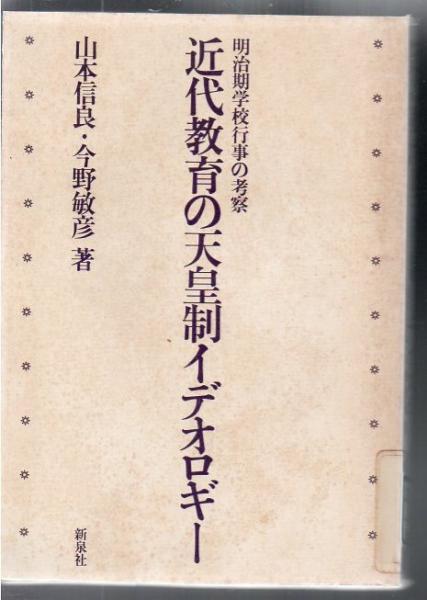 明治期学校行事の考察
近代教育の天皇制イデオロギー
山本信良・今野敏彦 著
新泉社